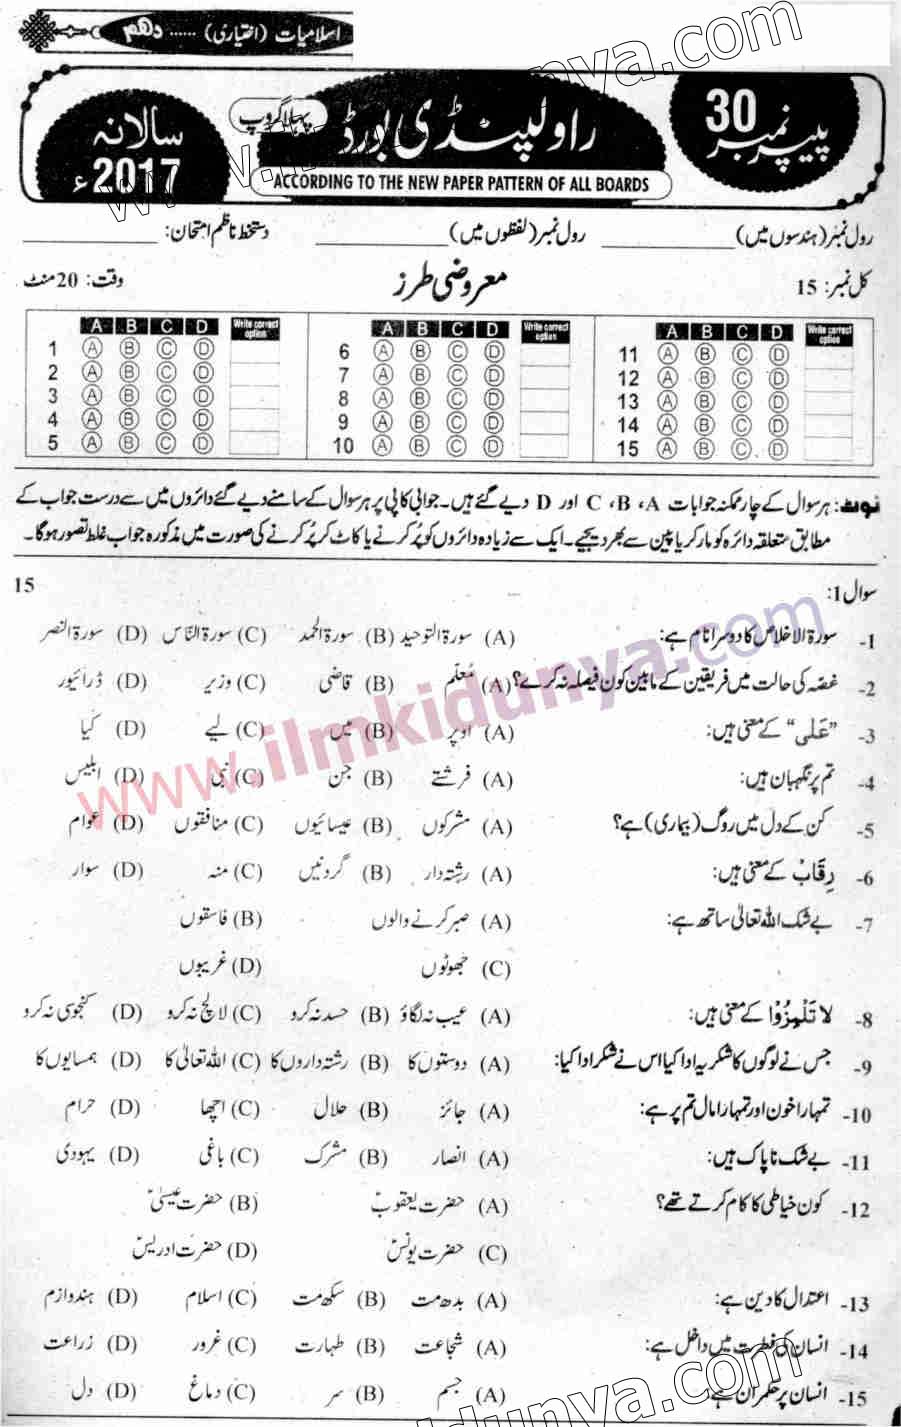 اسلامیات (اختیاری) ...... دھم
پیپر نمبر 30
راولپنڈی بورڈ
پہلا گروپ
سالانہ 2017ء
ACCORDING TO THE NEW PAPER PATTERN OF ALL BOARDS
رول نمبر (ہندسوں میں) ____________ رول نمبر (لفظوں میں) ____________ دستخط ناظم امتحان: ____________
کل نمبر: 15 معروضی طرز وقت: 20 منٹ
A B C D Write correct option A B C D Write correct option A B C D Write correct option
1 A B C D 6 A B C D 11 A B C D
2 A B C D 7 A B C D 12 A B C D
3 A B C D 8 A B C D 13 A B C D
4 A B C D 9 A B C D 14 A B C D
5 A B C D 10 A B C D 15 A B C D
نوٹ: ہر سوال کے چار ممکنہ جوابات A، B، C اور D دیے گئے ہیں۔ جوابی کاپی پر ہر سوال کے سامنے دیے گئے دائروں میں سے درست جواب کے
مطابق متعلقہ دائرہ کو مارکر یا پین سے بھر دیجیے۔ ایک سے زیادہ دائروں کو پُر کرنے یا کاٹ کر پُر کرنے کی صورت میں مذکورہ جواب غلط تصور ہوگا۔
سوال 1: 15
1- سورۃ الاخلاص کا دوسرا نام ہے: (A) سورۃ التوحید (B) سورۃ الحمد (C) سورۃ النّاس (D) سورۃ النصر
2- غصّہ کی حالت میں فریقین کے مابین کون فیصلہ نہ کرے؟ (A) مُعلّم (B) قاضی (C) وزیر (D) ڈرائیور
3- ”عَلٰی“ کے معنی ہیں: (A) اوپر (B) میں (C) لیے (D) کیا
4- تم پر نگہبان ہیں: (A) فرشتے (B) جن (C) نبی (D) ابلیس
5- کن کے دل میں روگ (بیماری) ہے؟ (A) مشرکوں (B) عیسائیوں (C) منافقوں (D) عوام
6- رِقَاب کے معنی ہیں: (A) رشتہ دار (B) گردنیں (C) منہ (D) سوار
7- بے شک اللہ تعالیٰ ساتھ ہے: (A) صبر کرنے والوں (B) فاسقوں
(C) جھوٹوں (D) غریبوں
8- لَا تَلْمِزُوْا کے معنی ہیں: (A) عیب نہ لگاؤ (B) حسد نہ کرو (C) لالچ نہ کرو (D) کنجوسی نہ کرو
9- جس نے لوگوں کا شکریہ ادا کیا اس نے شکر ادا کیا: (A) دوستوں کا (B) رشتہ داروں کا (C) اللہ تعالیٰ کا (D) ہمسایوں کا
10- تمہارا خون اور تمہارا مال تم پر ہے: (A) جائز (B) حلال (C) اچھا (D) حرام
11- بے شک ناپاک ہیں: (A) انصار (B) مشرک (C) باغی (D) یہودی
12- کون خیاطی کا کام کرتے تھے؟ (A) حضرت یعقوبؑ (B) حضرت عیسیٰؑ
(C) حضرت یونسؑ (D) حضرت ادریسؑ
13- اعتدال کا دین ہے: (A) بدھ مت (B) سکھ مت (C) اسلام (D) ہندوازم
14- انسان کی فطرت میں داخل ہے: (A) شجاعت (B) طہارت (C) غرور (D) زراعت
15- انسان پر حکمران ہے: (A) جسم (B) سر (C) دماغ (D) دل
www.ilmkidunya.com